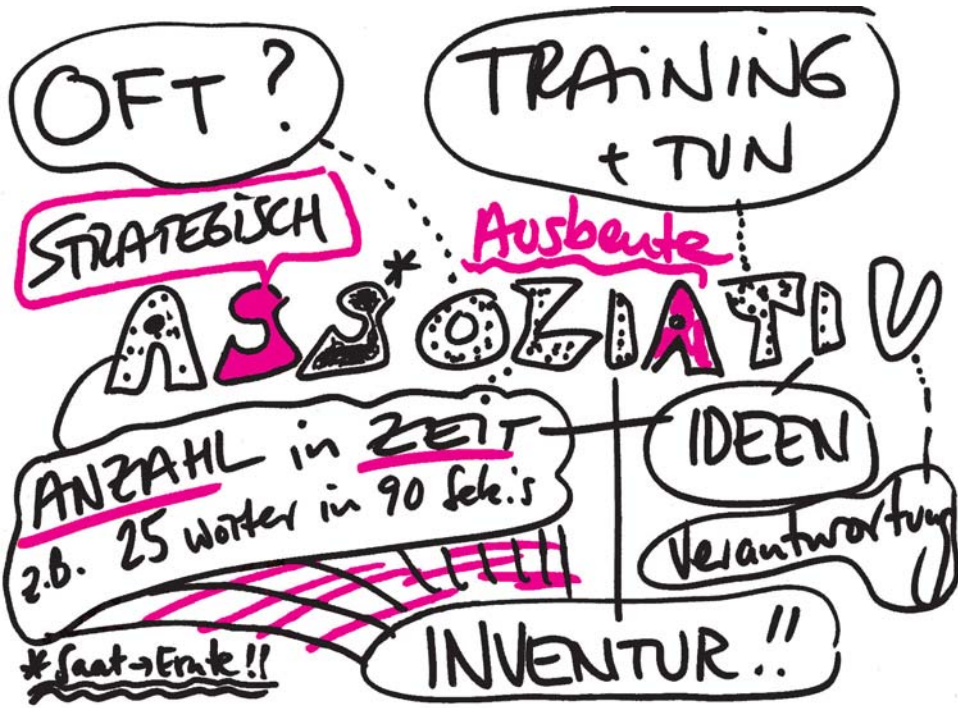 OFT?
TRAiNiNG
+ TUN
STRATEGiSCH
Ausbeute
ASSOZIATIV*
ANZAHL in ZEIT
z.B. 25 Wörter in 90 Sek.'s
IDEEN
Verantwortung
INVENTUR!!
*Saat→Ernte!!